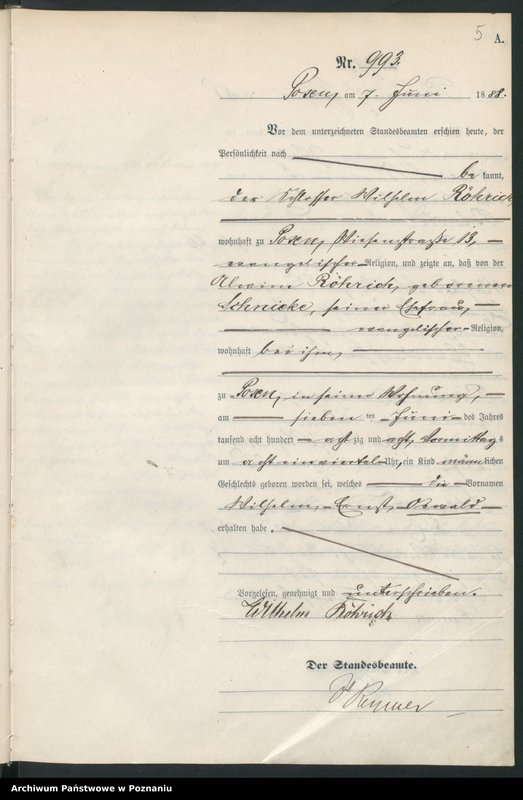 5 A.
Nr. 993.
Posen, am 7. Juni 1888.
Vor dem unterzeichneten Standesbeamten erschien heute, der
Persönlichkeit nach
be kannt,
der Schlosser Wilhelm Röhrich
wohnhaft zu Posen, Wiesenstraße 13,
evangelischer Religion, und zeigte an, daß von der
Alwine Röhrich, geborenen
Schnicke, seiner Ehefrau,
evangelischer Religion,
wohnhaft bei ihm,
zu Posen, in seiner Wohnung,
am sieben ten Juni des Jahres
tausend acht hundert acht zig und acht, Vormittag s
um acht einviertel Uhr, ein Kind männ lichen
Geschlechts geboren worden sei, welches die Vornamen
Wilhelm, Ernst, Oswald
erhalten habe.
Vorgelesen, genehmigt und unterschrieben.
Wilhelm Röhrich
Der Standesbeamte.
Archiwum Państwowe w Poznaniu